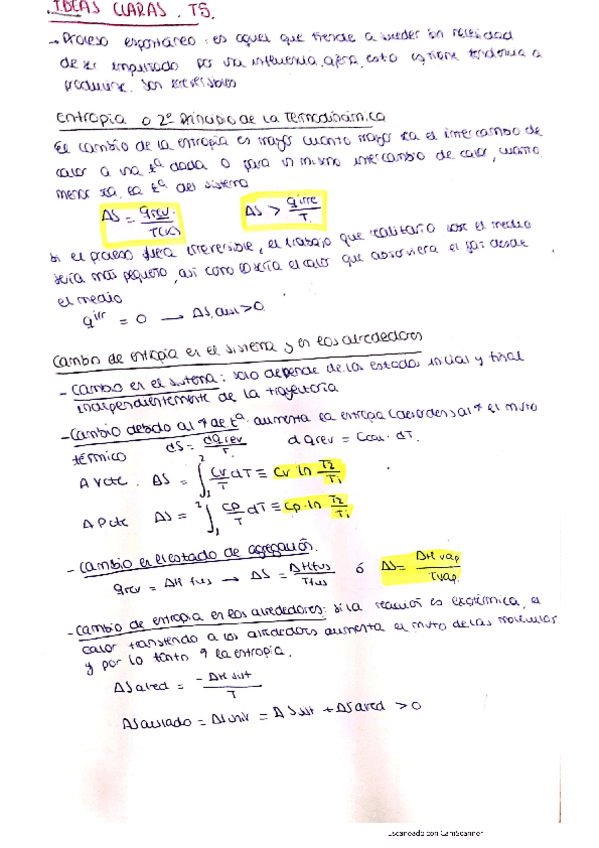 IDEAS CLARAS. T5.
→ Proceso espontáneo: es aquel que tiende a suceder sin necesidad
de ser impulsado por una influencia ajena, esto es, tiene tendencia a
producirse. Son irreversibles
Entropía o 2º Principio de la Termodinámica
El cambio de la entropía es mayor cuanto mayor sea el intercambio de
calor a una tª dada o para un mismo intercambio de calor, cuanto
menor sea la tª del sistema
ΔS = qrev. / T(K)   ΔS > qirr / T.
Si el proceso fuera irreversible, el trabajo que realizaría sobre el medio
sería más pequeño, así como lo sería el calor que absorviera el gas desde
el medio
qirr = 0 → ΔS,aisl > 0
Cambio de entropía en el sistema y en los alrededores
- Cambio en el sistema: solo depende de los estados inicial y final
independientemente de la trayectoria
- Cambio debido al ↑ de tª: aumenta la entropía (desorden) al ↑ el mvto
térmico   dS = dqrev / T.   dqrev = Ccal · dT.
A V cte.   ΔS = ∫₁² Cv/T dT ≡ Cv ln T2/T1
A P cte   ΔS = ∫₁² Cp/T dT ≡ Cp · ln T2/T1
- Cambio en el estado de agregación.
qrev = ΔH fus → ΔS = ΔHfus / Tfus   ó   ΔS = ΔH vap / Tvap.
- Cambio de entropía en los alrededores: si la reacción es exotérmica, el
calor transferido a los alrededores aumenta el mvto de las moléculas
y por lo tanto ↑ la entropía.
ΔS alred = -ΔH sist / T
ΔS aislado = ΔS univ = ΔS sist + ΔS alred > 0
Escaneado con CamScanner